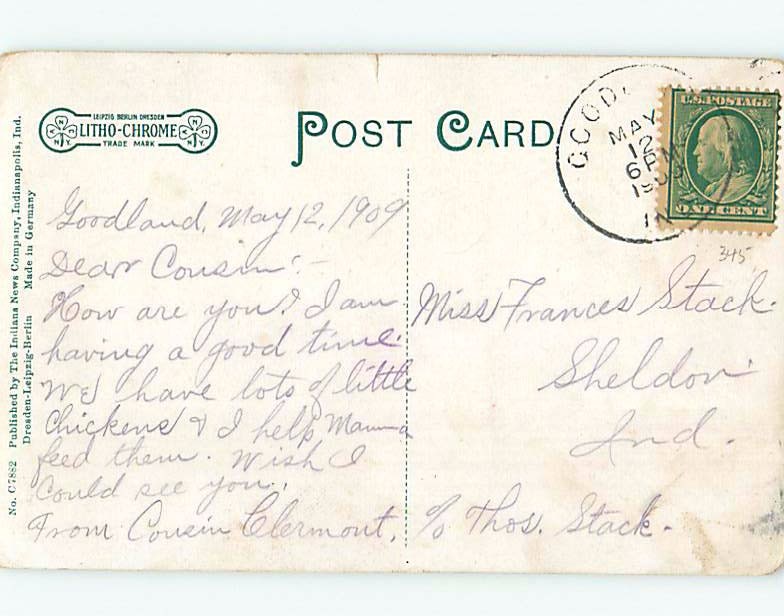 LEIPZIG BERLIN DRESDEN
LITHO-CHROME
TRADE MARK
N K N Y.
N K N Y.
POST CARD
GOOD
MAY
12
6 PM
1909
IN
U.S. POSTAGE
ONE CENT
345
No. C7882 Published by The Indiana News Company, Indianapolis, Ind.
Dresden-Leipzig-Berlin Made in Germany
Goodland, May 12, 1909
Dear Cousin:-
How are you? I am
having a good time.
We have lots of little
Chickens & I help Mamma
feed them. Wish I
Could see you.
From Cousin Clermont.
Miss Frances Stack.
Sheldon
Ind.
c/o Thos. Stack.